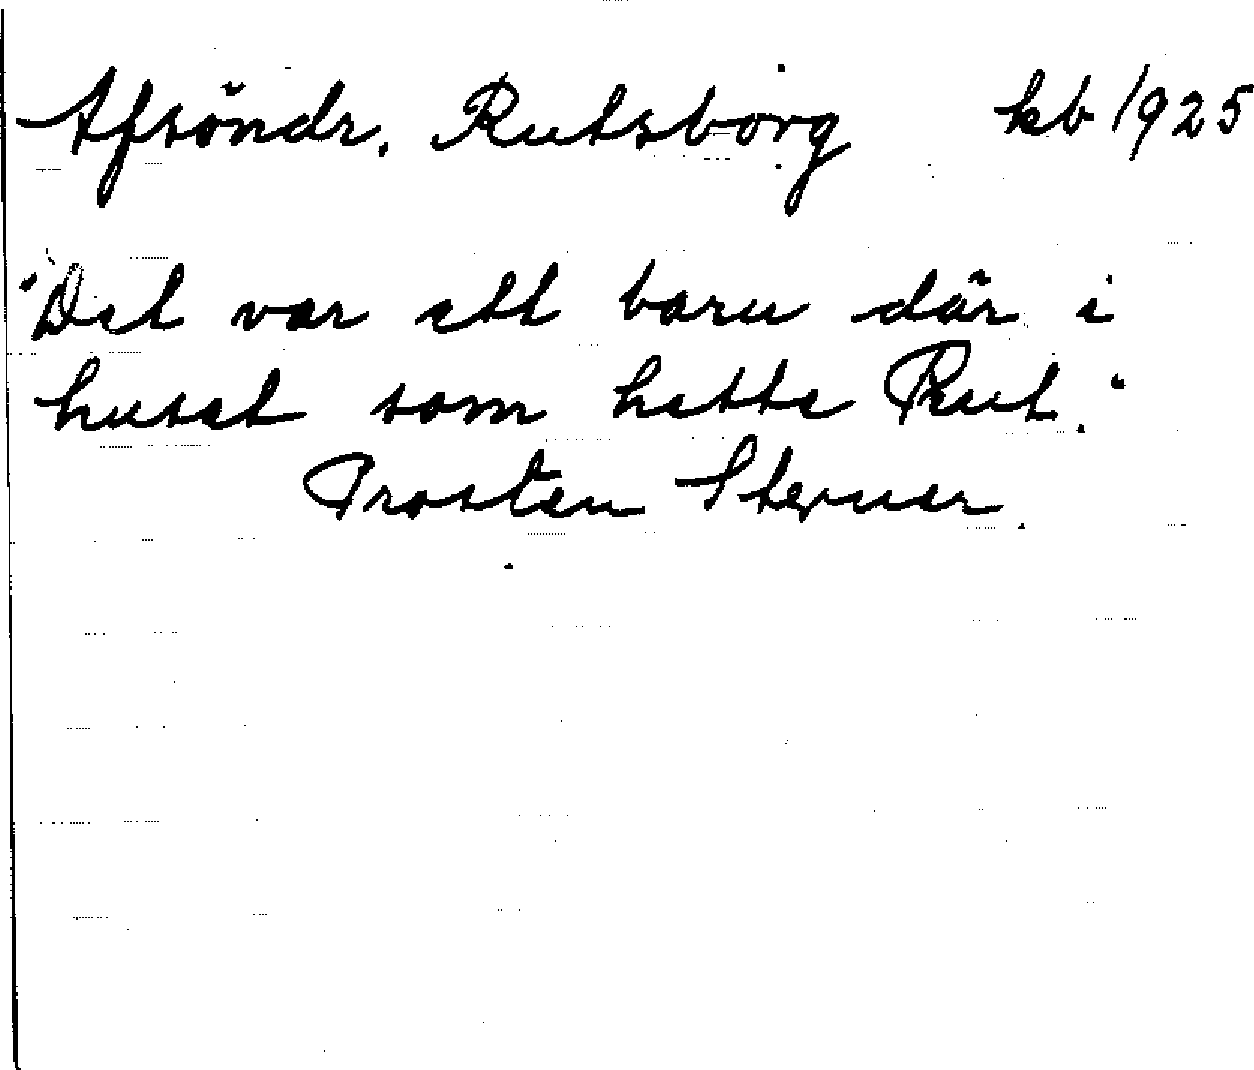 Afsöndr. Rutsborg kb 1925
"Det var ett barn där i
huset som hette Rut."
Prosten Sterner